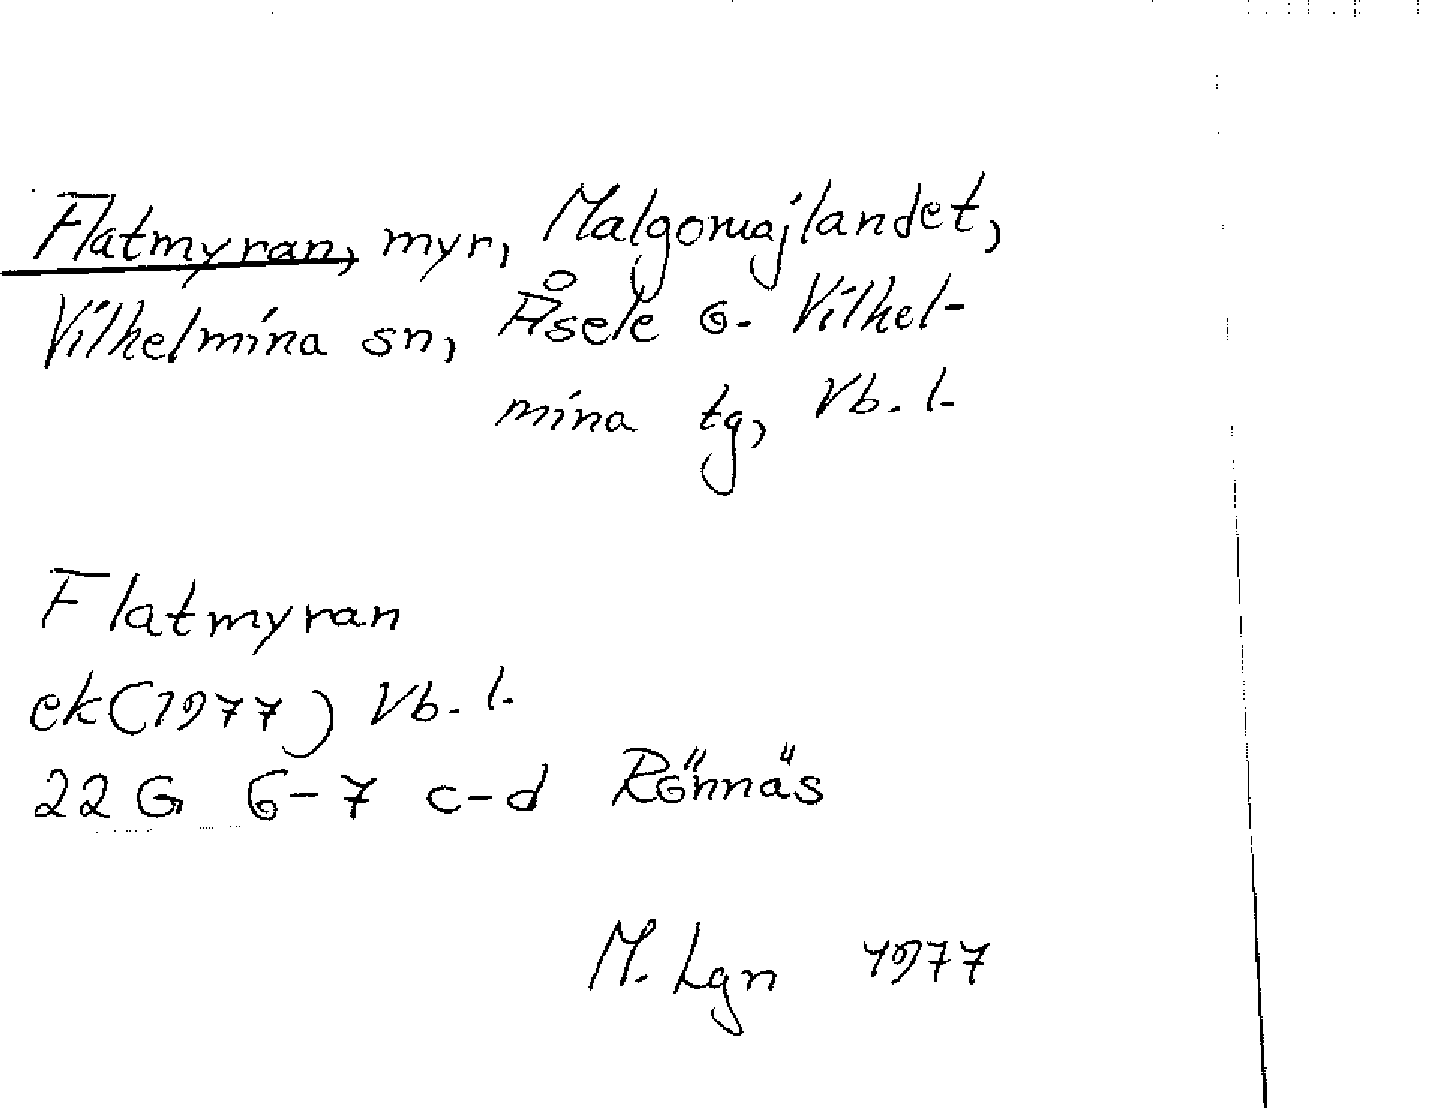 Flatmyran, myr, Malgomajlandet,
Vilhelmina sn, Åsele o. Vilhel-
mina tg, Vb. l.
Flatmyran
ek (1977) Vb. l.
22 G 6-7 c-d Rönnäs
M. Lgn 1977